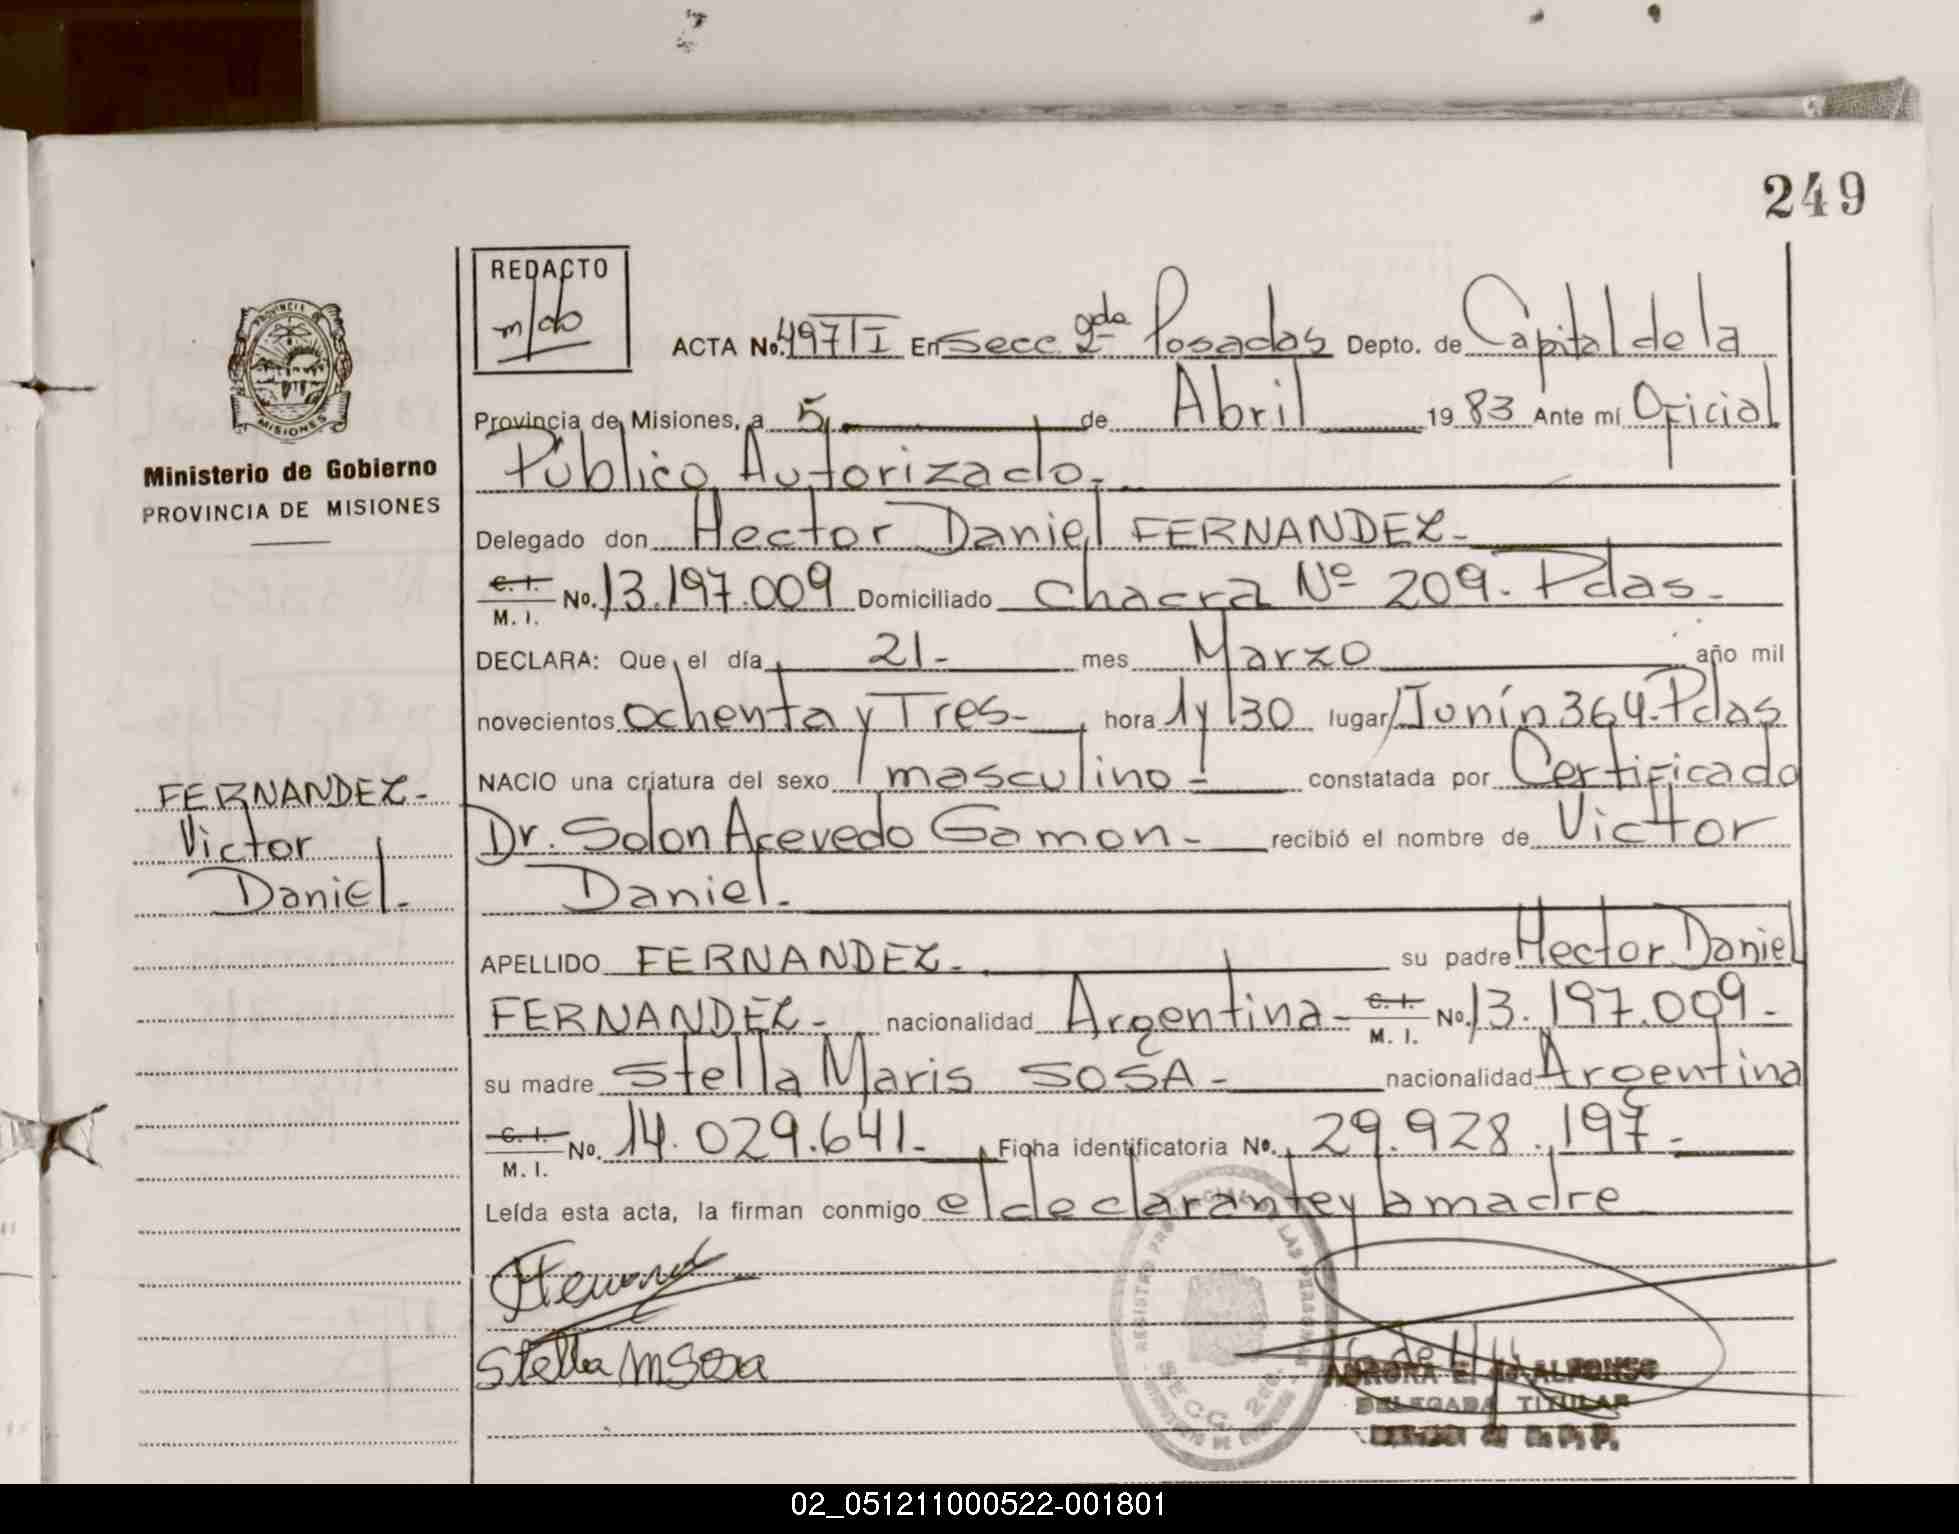 249
REDACTO
m/do
ACTA No. 497 TI En Secc 2da Posadas Depto. de Capital de la
Provincia de Misiones, a 5 de Abril 1983 Ante mí Oficial
Publico Autorizado.
Delegado don Hector Daniel FERNANDEZ-
C. I.
M. I. No. 13.197.009 Domiciliado chacra Nº 209. Pdas.
DECLARA: Que el día 21- mes Marzo año mil
novecientos ochenta y Tres- hora 1 y 30 lugar Junín 364. Pdas
NACIO una criatura del sexo masculino- constatada por Certificado
Dr. Solon Acevedo Gamon- recibió el nombre de Victor
Daniel.
APELLIDO FERNANDEZ- su padre Hector Daniel
FERNANDEZ- nacionalidad Argentina- C. I.
M. I. No. 13.197.009-
su madre Stella Maris SOSA- nacionalidad Argentina
C. I.
M. I. No. 14.029.641- Ficha identificatoria No. 29.928.197-
Leída esta acta, la firman conmigo el declarante y la madre
Stella M Sosa
REGISTRO PROVINCIAL DE LAS PERSONAS
SECC. 2da.
AURORA E. de ALFONSO
DELEGADA TITULAR
R. P. P.
PROVINCIA DE
MISIONES
Ministerio de Gobierno
PROVINCIA DE MISIONES
FERNANDEZ-
Victor
Daniel.
02_051211000522-001801